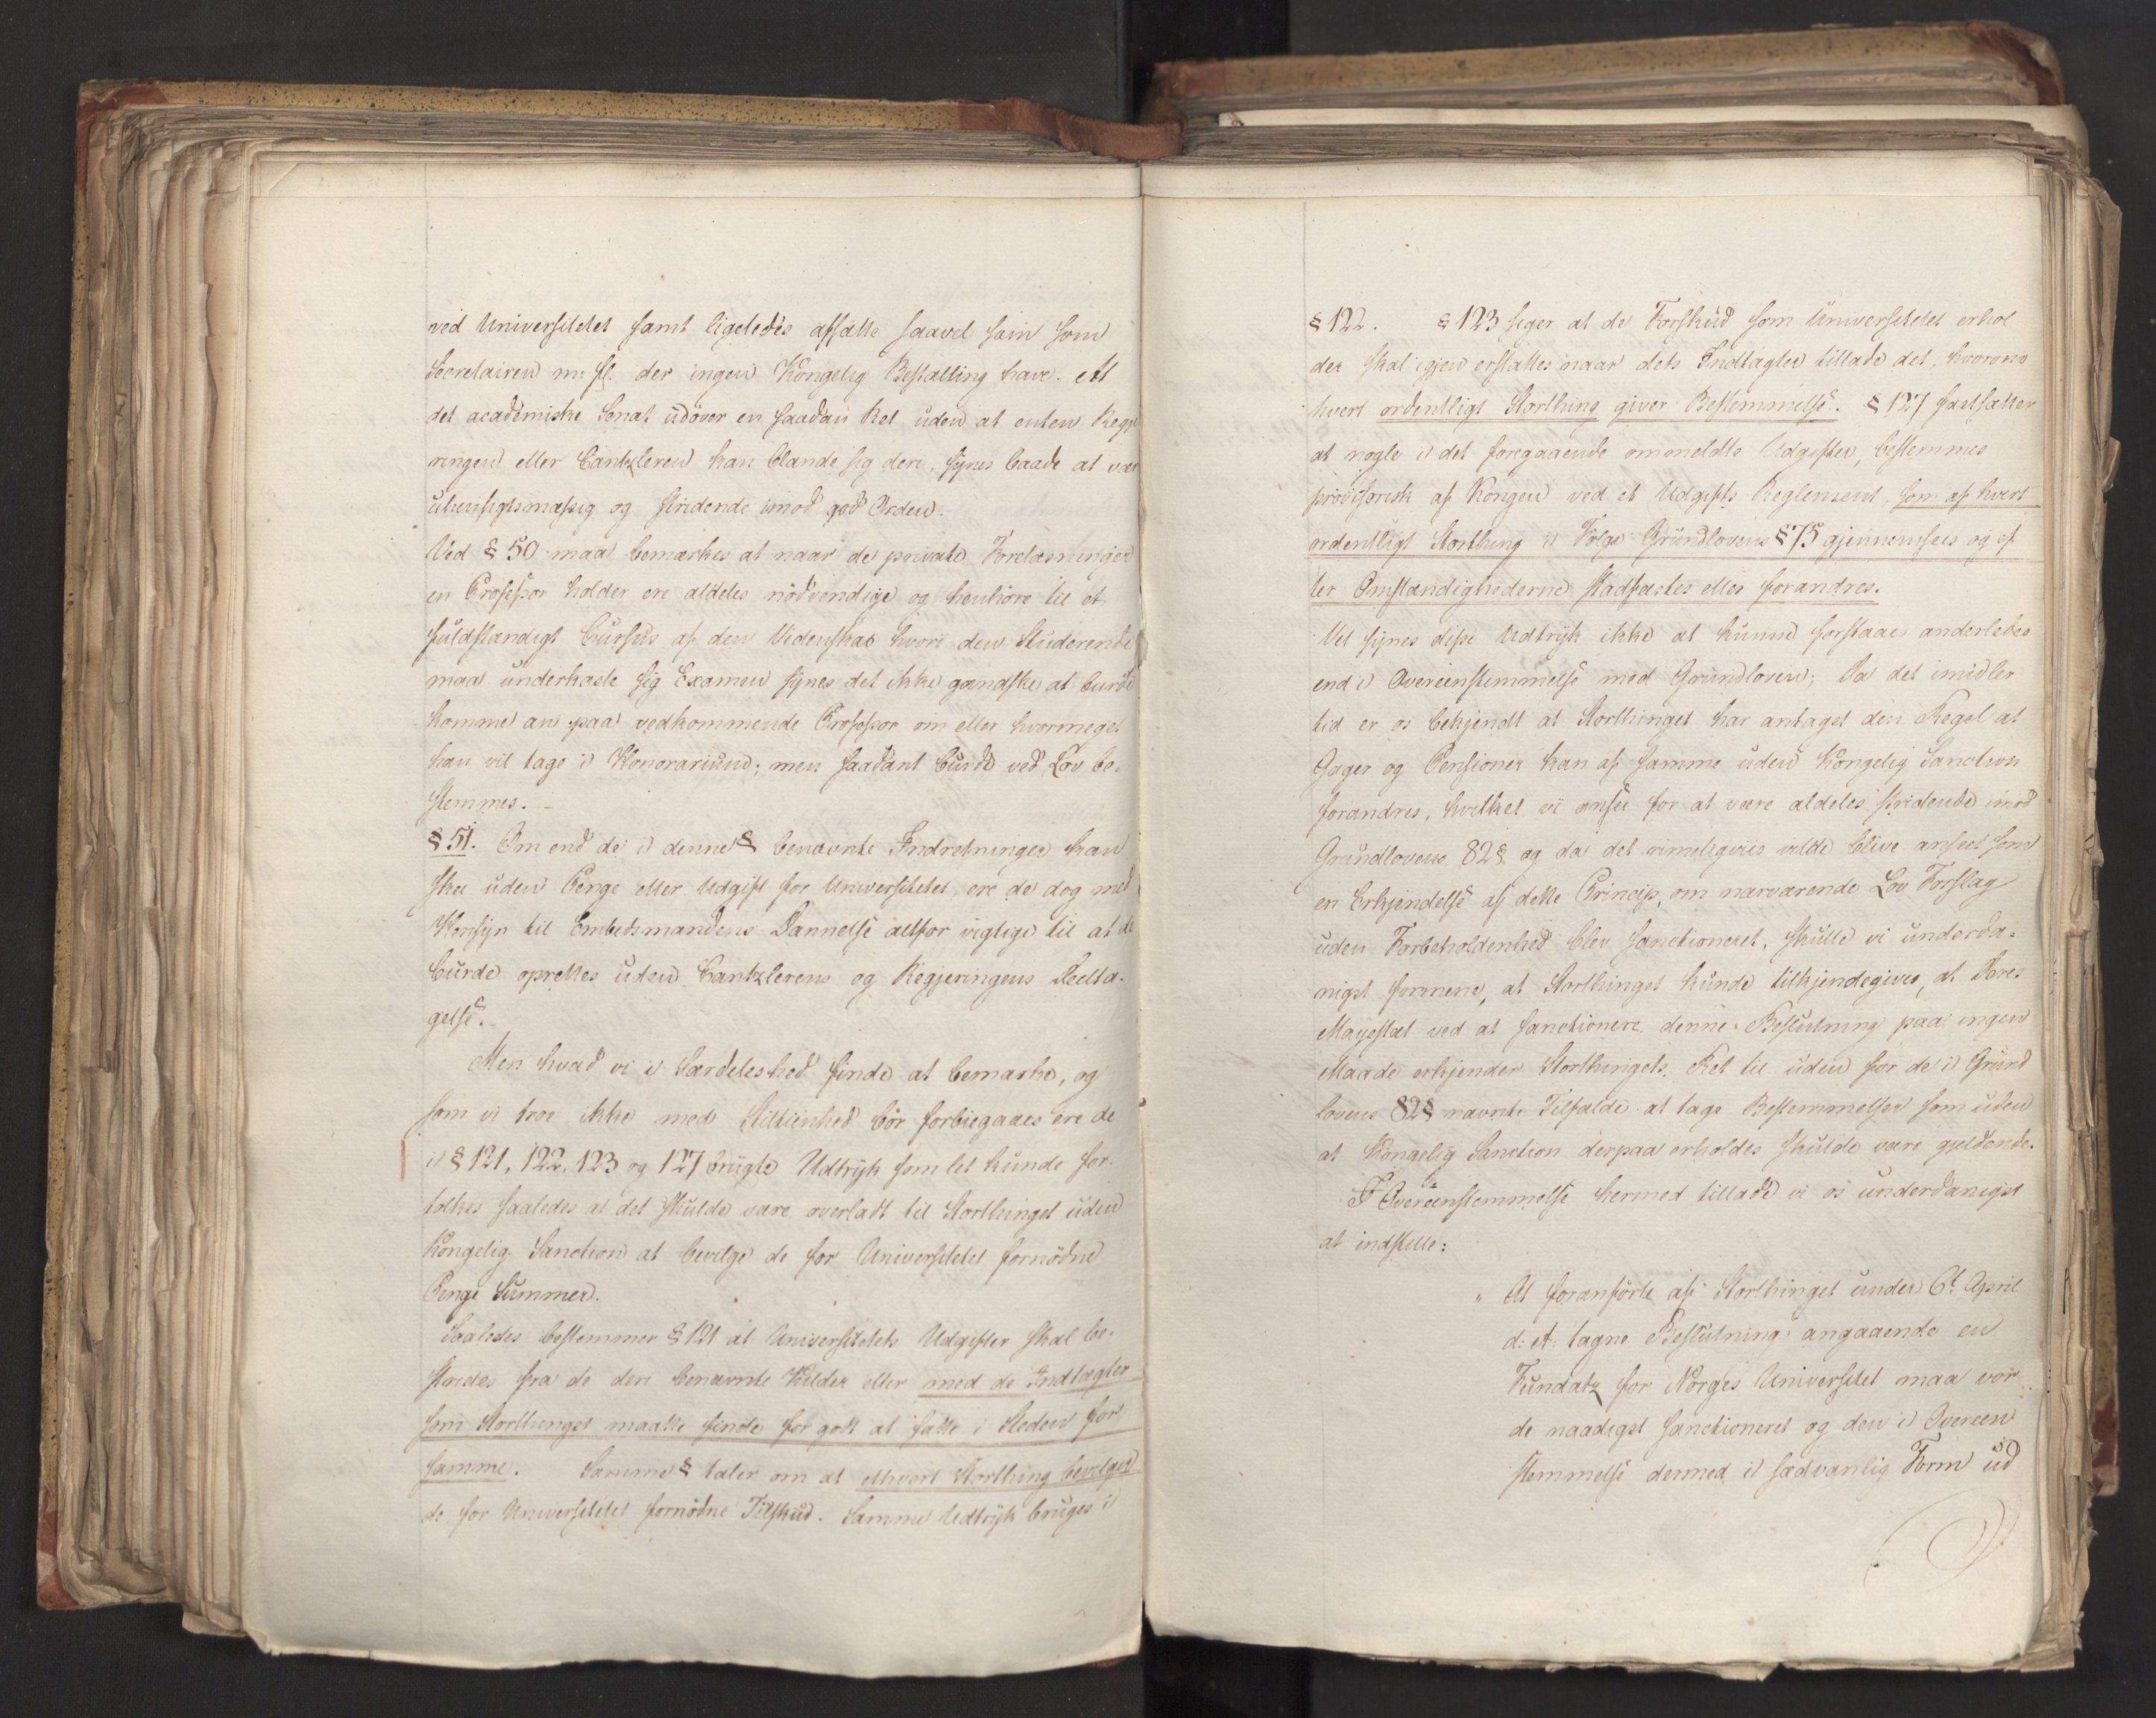 ved Universitetet samt ligeledes afsætte saavel ham som
Secretairen m: fl. der ingen Kongelig Bestalling have. At
det academiske Senat udöver en saadan Ret uden at enten Regje
ringen eller Cantzleren kan blande sig deri, synes baade at være
uhensigtsmæssig og stridende imod god Orden.
Ved § 50 maa bemærkes at naar de private Forelæsninger
en Professor holder ere aldeles nödvendige og henhöre til et
fuldstændigt Cursus af den Videnskab hvori den Studerende
maa underkaste sig Examen synes det ikke gandske at burde
komme an paa vedkommende Professor om eller hvormeget
han vil tage i Honorarium; men saadant burde ved Lov be-
stemmes. -
§ 51. Om end de i denne § benævnte Indretninger kan
skee uden Penge eller Udgift for Universitetet ere de dog med
Hensyn til Embedsmandens Dannelse altfor vigtige til at de
burde oprettes uden Cantzlerens og Regjeringens Deelta-
gelse. -
Men hvad vi i Særdeleshed finde at bemærke, og
som vi troe ikke med Stiltienhed bör forbiegaaes ere de
i § 121, 122, 123 og 127 brugte Udtryk som let kunde for-
tolkes saaledes at det skulde være overladt til Storthinget uden
Kongelig Sanction at bevilge de for Universitetet fornödne
Penge Summer.
Saaledes bestemmer § 121 at Universitetets Udgifter skal be-
strides fra de deri benævnte Kilder eller med de Indtægter
som Storthinget maatte finde for godt at sætte i Steden for
samme. Samme § taler om at ethvert Storthing bevilger
de for Universitetet fornödne Tilskud. Samme Udtryk bruges i
§ 122. § 123 siger at de Forskud som Universitetet erhol
der skal igjen erstattes naar dets Indtægter tillade det, hvorom
hvert ordentligt Storthing giver Bestemmelse. § 127 fastsætter
at nogle i det foregaaende ommeldte Udgifter, bestemmes
provisorisk af Kongen ved et Udgifts Reglement, som af hvert
ordentligt Storthing i Fölge Grundlovens § 75 gjennemsees og ef
ter Omstændighederne stadfæstes eller forandres.
Vel synes disse Udtryk ikke at kunne forstaaes anderledes
end i Overeenstemmelse med Grundloven; Da det imidler
tid er os bekjendt at Storthinget har antaget den Regel at
Gager og Pensioner kan af samme uden Kongelig Sanction
forandres, hvilket vi ansee for at være aldeles stridende imod
Grundlovens 82 § og da det rimeligviis vilde blive anseet som
en Erkjendelse af dette Princip, om nærværende Lov Forslag
uden Forbeholdenhed blev sanctioneret, skulle vi underda-
nigst formene, at Storthinget kunde tilkjendegives, at Deres
Majestæt ved at sanctionere denne Beslutning paa ingen
Maade erkjender Storthingets Ret til uden for de i Grund
lovens 82 § nævnte Tilfælde at tage Bestemmelser som uden
at Kongelig Sanction derpaa erholdes skulde være gjeldende.
I Overeenstemmelse hermed tillade vi os underdanigst
at indstille:
" At foranförte af Storthinget under 6t April
d: A: tagne Beslutning angaaende en
Fundatz for Norges Universitet maa vor
de naadigst sanctioneret og den i Overeen
stemmelse dermed i sædvanlig Form ud